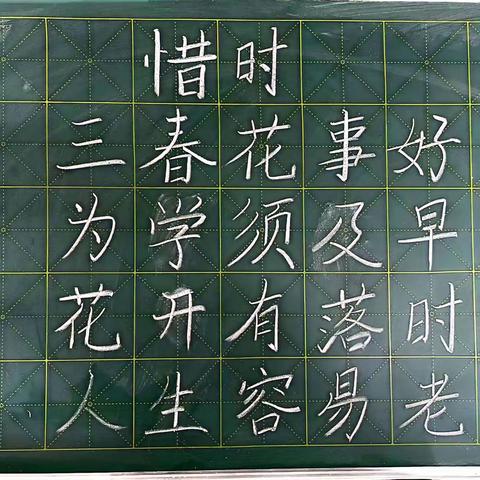 惜时
三春花事好
为学须及早
花开有落时
人生容易老